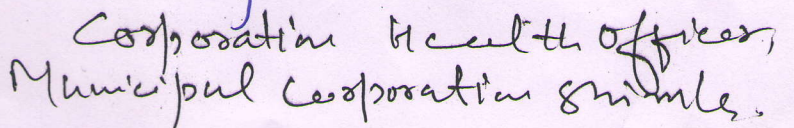 Corporation Health Officer,
Municipal Corporation Shimla.